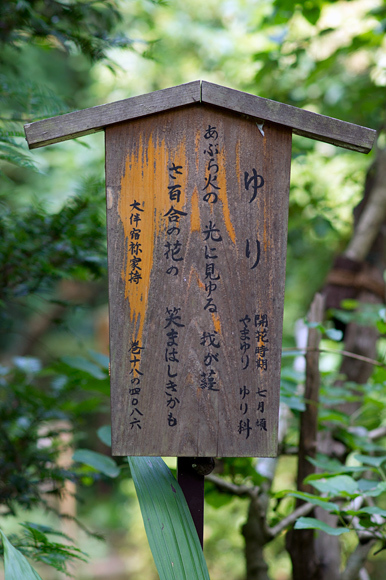 ゆり
開花時期 七月頃
やまゆり ゆり科
あぶら火の 光に見ゆる 我が蘰
さ百合の花の 笑まはしきかも
大伴宿祢家持 巻十八の四〇八六